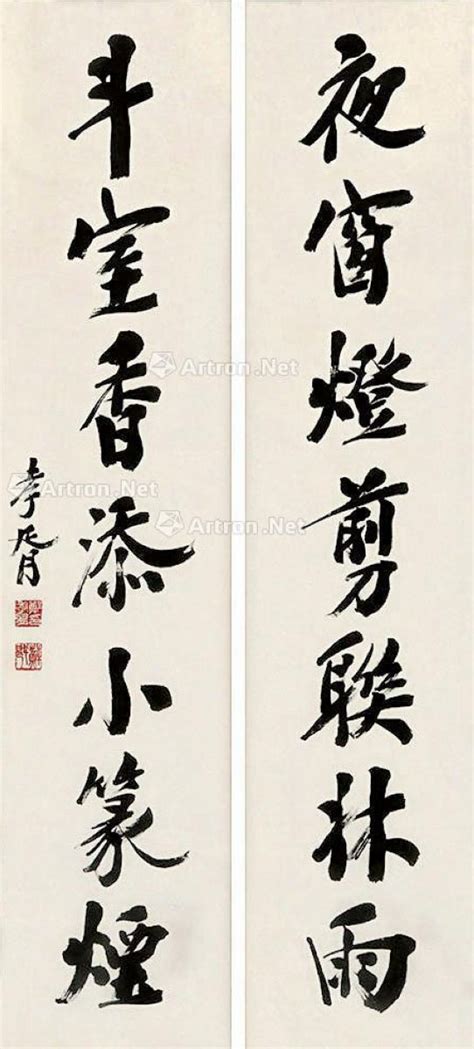 夜窗燈剪聯牀雨
斗室香添小篆煙
孝胥
Artron.Net
Artron.Net
Artron.Net